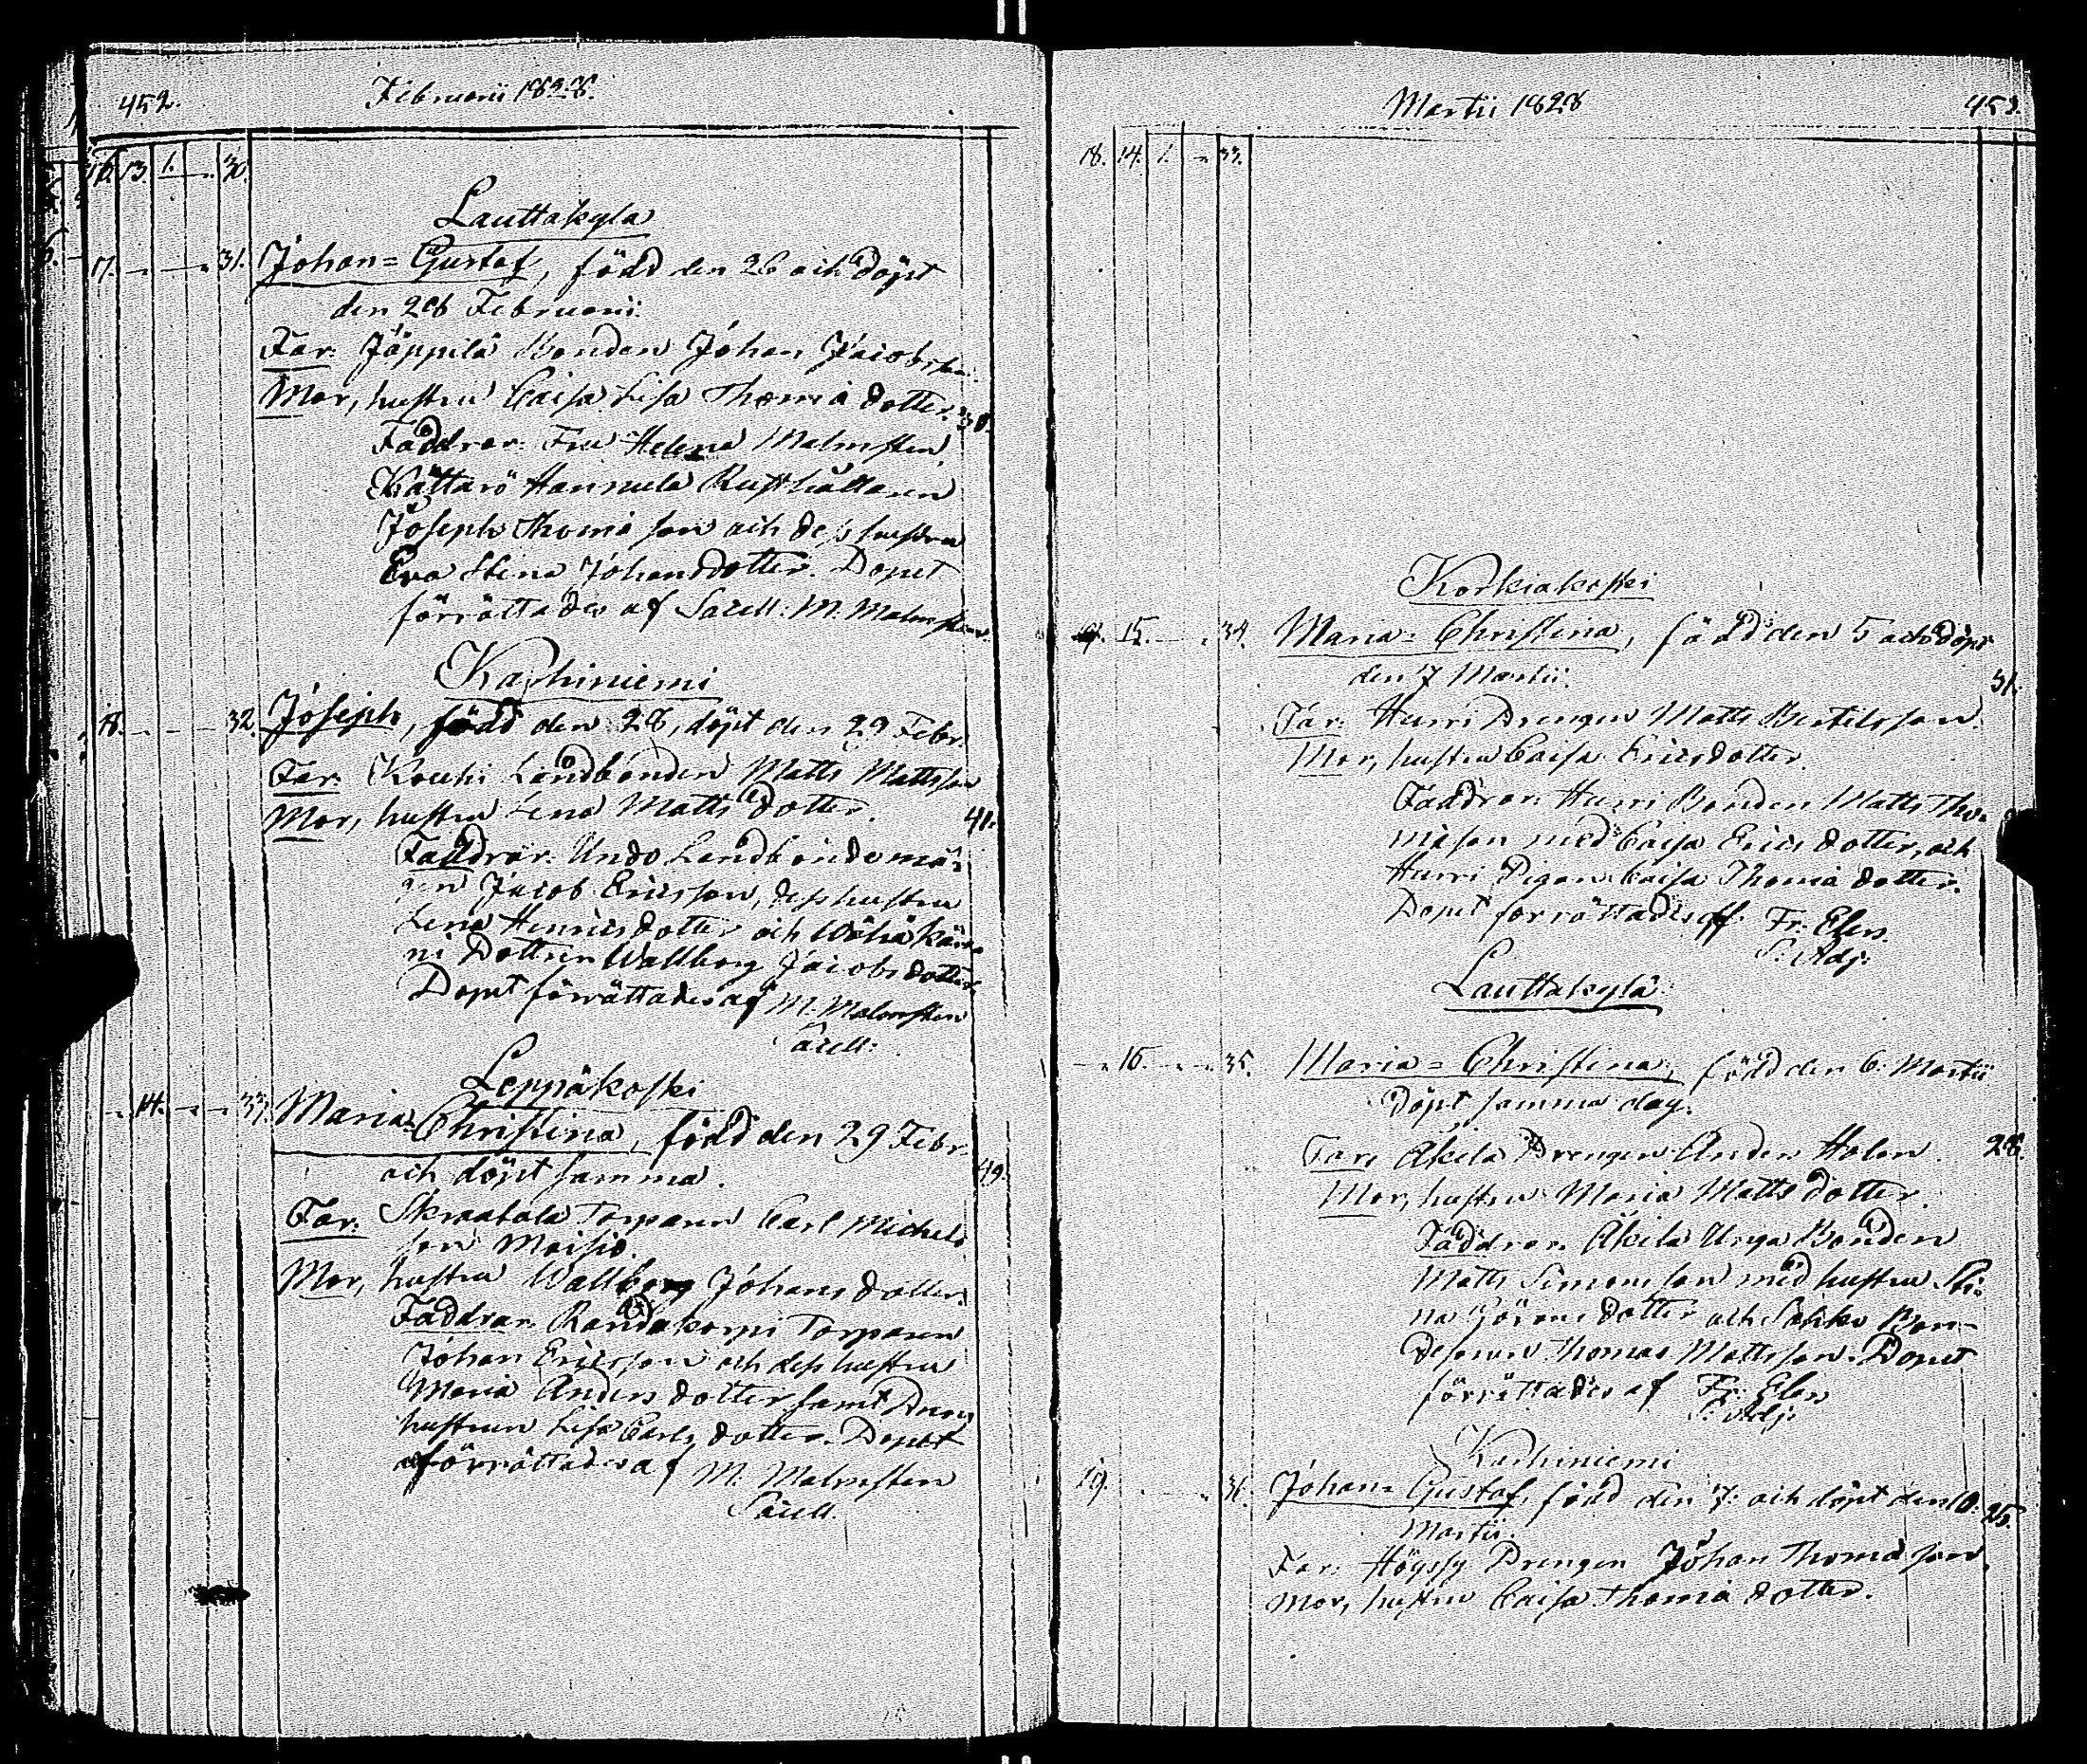 452. Februarii 1828.
16. 13. 1. 30.
Lauttakyla
17. 31. Johan=Gustaf, född den 26 och döpt
den 28 Februarii.
Far: Jöppilä Bonden Johan Jacobsson
Mor, hustru Caisa Lisa Thomä dotter. 30.
Faddrar: Fru Helena Malmsten,
Kättarö Hannula Rusthållaren
Joseph Thomä son och dess hustru
Eva Stina Johansdotter. Dopet
förrättades af Sacell: M. Malmsten.
Karhiniemi
18. 32. Joseph, född den 28, döpt den 29 Febr.
Far: Kouhi Landbonden Matts Mattsson
Mor, hustru Lena Mattsdotter. 41.
Faddrar: Undo Landbondemå-
gen Jacob Ericsson, dess hustru
Lena Henricsdotter och Wähä
ni Dottren Wallborg Jacobsdotter.
Dopet förrättades af M. Malmsten
Sacell:
Leppäkoski
14. 33. Maria=Christina, född den 29 Febr.
och döpt samma. 49.
Far: Skraatala Torparen Carl Michels
son Moisio.
Mor, hustru Wallborg Johans dotter.
Faddrar: Randakorpi Torparen
Johan Ericsson och dess hustru
Maria Anders dotter samt Dreng
hustrun Lisa Carls dotter. Dopet
förrättades af M. Malmsten
Sacell.
Martii 1828 453.
18. 14. 1. 33.
Korkiakoski
15. 34. Maria=Christina, född den 5 och döpt
den 7 Martii. 31.
Far: Hurri Drengen Matts Bertilsson.
Mor, hustru Caisa Ericsdotter.
Faddrar: Hurri Bonden Matts Tho-
mäson med Caisa Erics dotter, och
Hurri Pigan Caisa Thomä dotter.
Dopet förrättades af Fr: Elen.
S. Adj:
Lauttakylä
16. 35. Maria=Christina, född den 6. Martii
döpt samma dag.
Far, Äkila Drengen Anders Holen. 28.
Mor, hustru Maria Matts dotter.
Faddrar: Äkila Unga Bonden
Matts Simonsson med hustru Sti-
na Görans dotter och Bon-
desonen Thomas Mattsson. Dopet
förrättades af Fr: Elen
S. Adj:
Karhiniemi
19. 36. Johan=Gustaf, född den 7. och döpt den 10. 25.
Martii.
Far: Höyssy Drengen Johan Thomä son
Mor, hustru Caisa Thomä dotter.